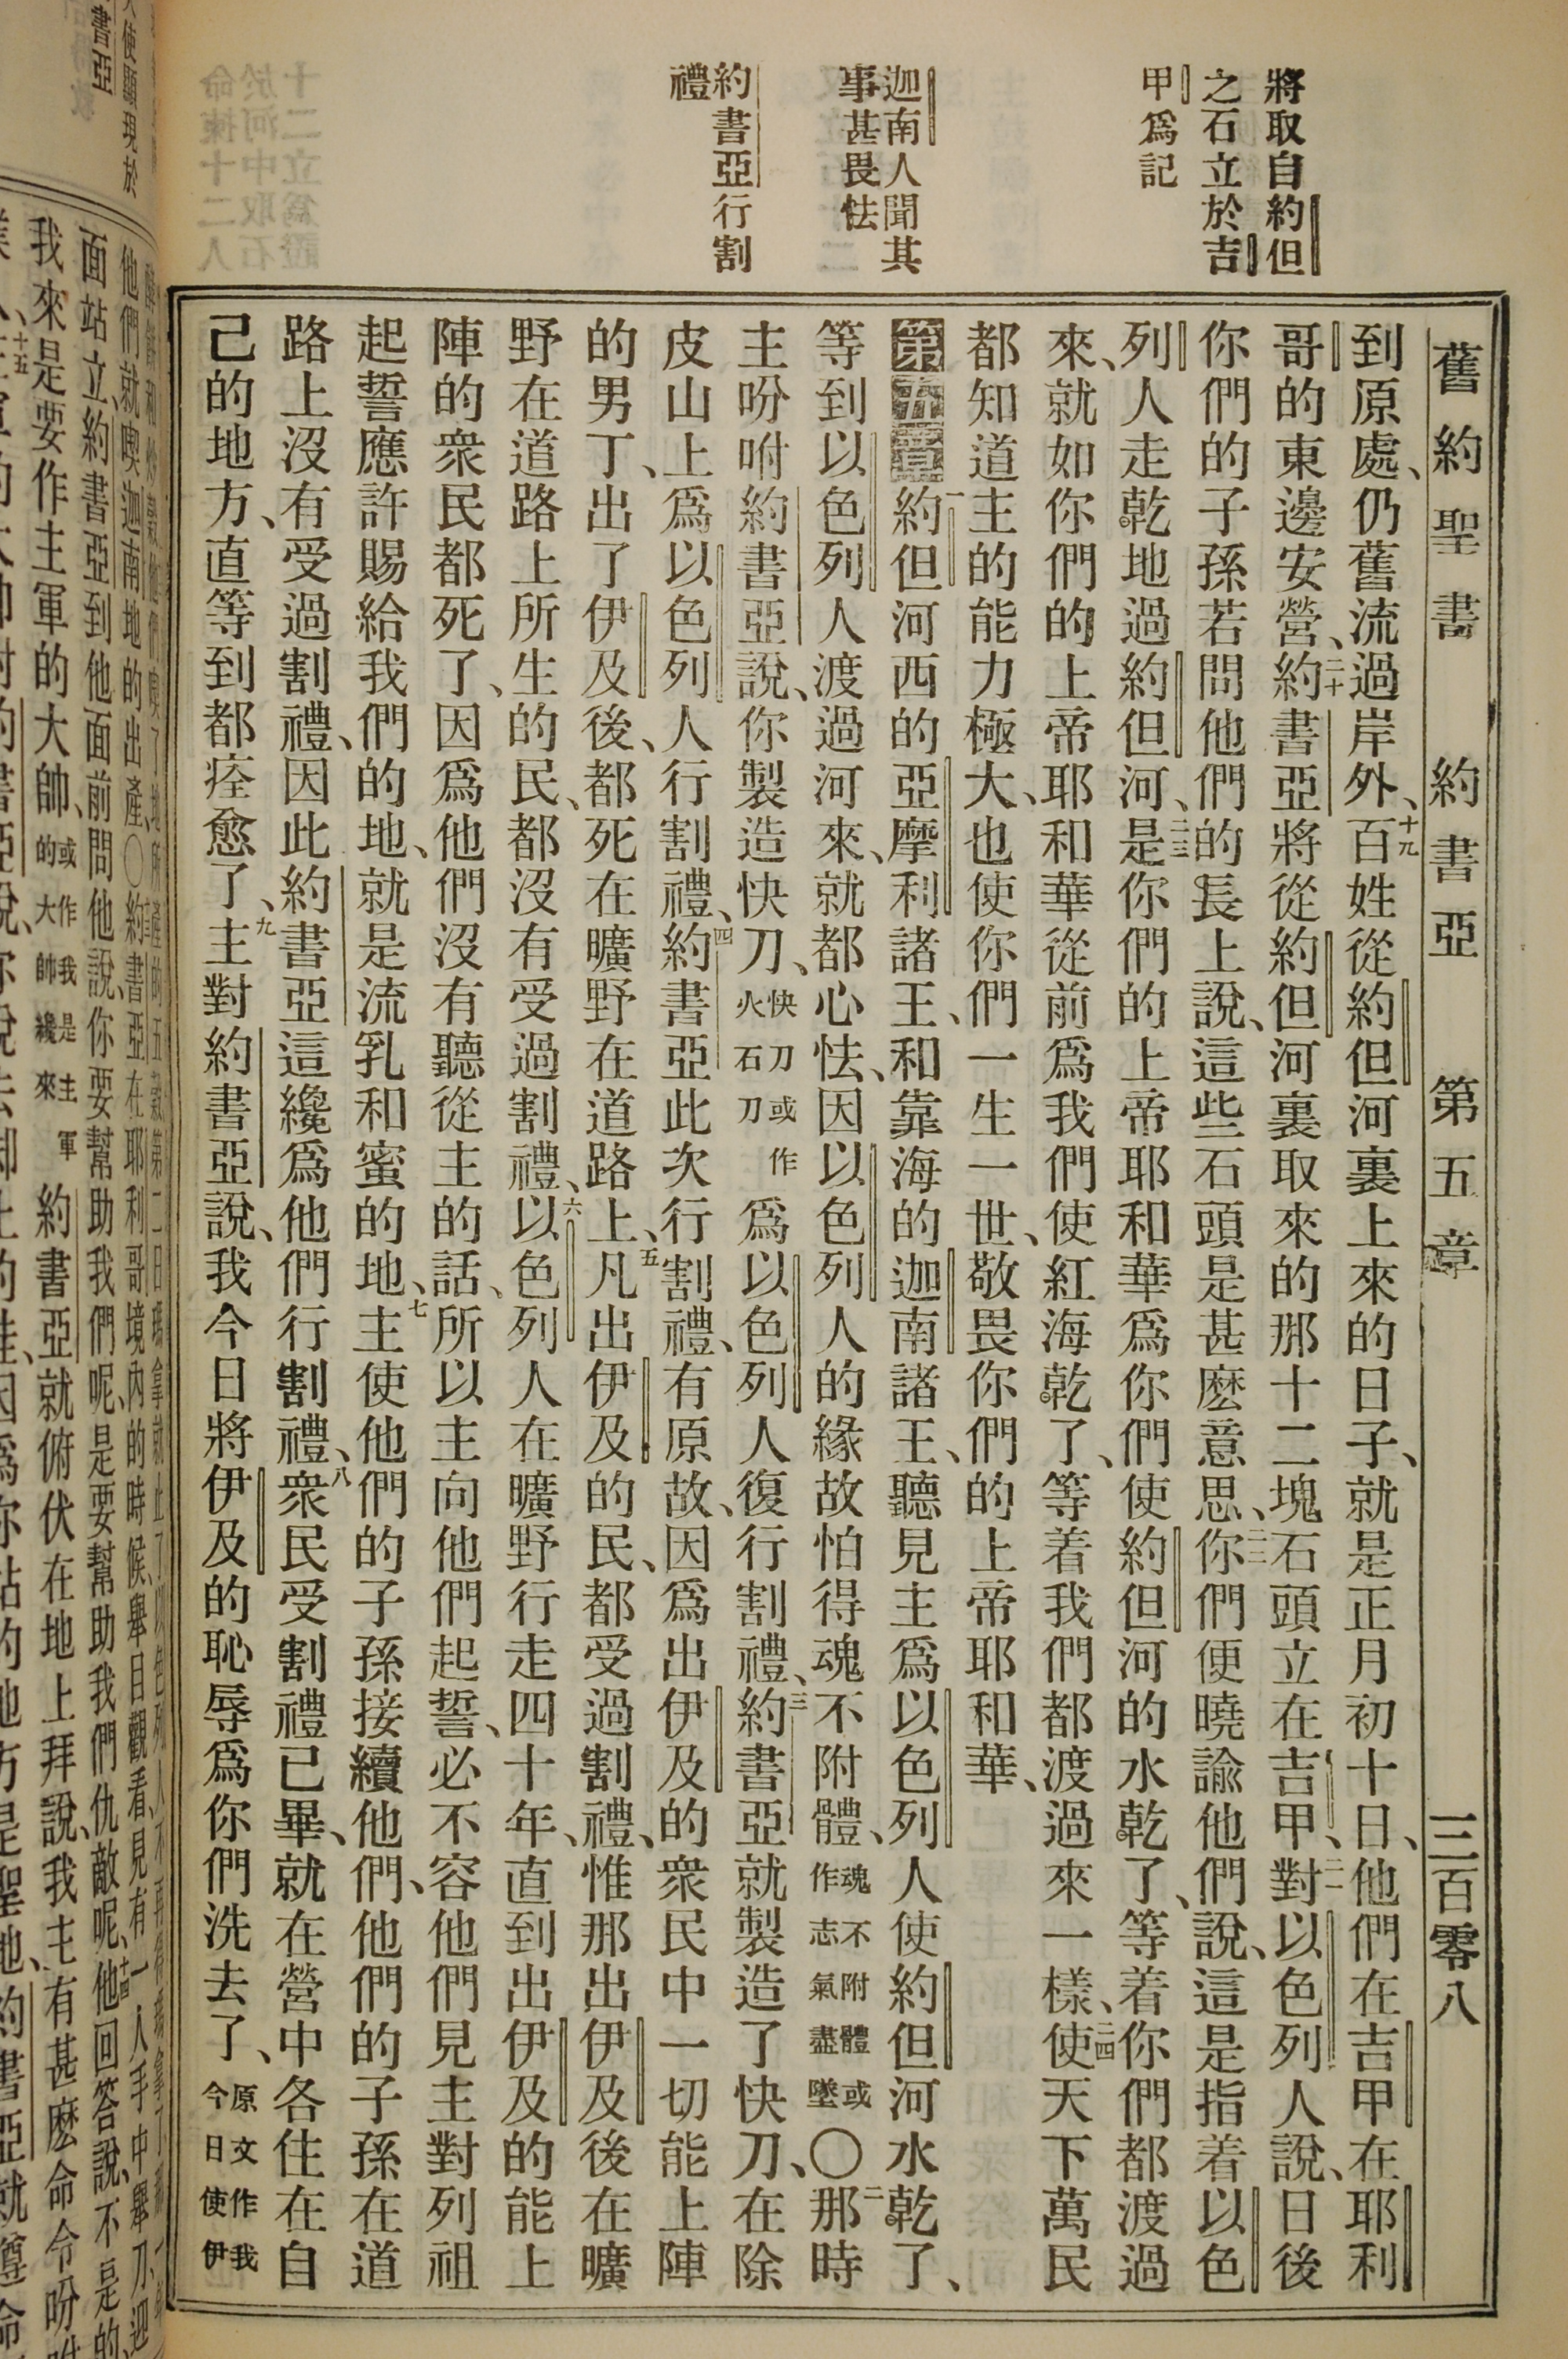 將取自約但
之石立於吉
甲爲記
迦南人聞其
事甚畏怯
約書亞行割
禮
舊約聖書 約書亞 第五章 三百零八
到原處、仍舊流過岸外、十九百姓從約但河裏上來的日子、就是正月初十日、他們在吉甲在耶利
哥的東邊安營、二十約書亞將從約但河裏取來的那十二塊石頭立在吉甲、二一對以色列人說、日後
你們的子孫若問他們的長上說、這些石頭是甚麽意思、二二你們便曉諭他們說、這是指着以色
列人走乾地過約但河、二三是你們的上帝耶和華爲你們使約但河的水乾了、等着你們都渡過
來、就如你們的上帝耶和華從前爲我們使紅海乾了、等着我們都渡過來一樣、二四使天下萬民
都知道主的能力極大、也使你們一生一世、敬畏你們的上帝耶和華、
第五章 一約但河西的亞摩利諸王、和靠海的迦南諸王、聽見主爲以色列人使約但河水乾了、
等到以色列人渡過河來、就都心怯、因以色列人的緣故怕得魂不附體、魂不附體或作志氣盡墜〇二那時
主吩咐約書亞說、你製造快刀、快刀或作火石刀爲以色列人復行割禮、三約書亞就製造了快刀、在除
皮山上爲以色列人行割禮、四約書亞此次行割禮、有原故、因爲出伊及的衆民中一切能上陣
的男丁、出了伊及後、都死在曠野在道路上、五凡出伊及的民、都受過割禮、惟那出伊及後在曠
野在道路上所生的民、都沒有受過割禮、六以色列人在曠野行走四十年、直到出伊及的能上
陣的衆民都死了、因爲他們沒有聽從主的話、所以主向他們起誓、必不容他們見主對列祖
起誓應許賜給我們的地、就是流乳和蜜的地、七主使他們的子孫接續他們、他們的子孫在道
路上沒有受過割禮、因此約書亞這纔爲他們行割禮、八衆民受割禮已畢、就在營中各住在自
己的地方、直等到都痊愈了、九主對約書亞說、我今日將伊及的恥辱爲你們洗去了、原文作我今日使伊
面站立、約書亞到他面前問他說、你要幫助我們呢、是要幫助我們仇敵呢、他回答說、不是的、
我來是要作主軍的大帥、或作我是主軍的大帥纔來約書亞就俯伏在地上拜說、我主有甚麽命令吩咐